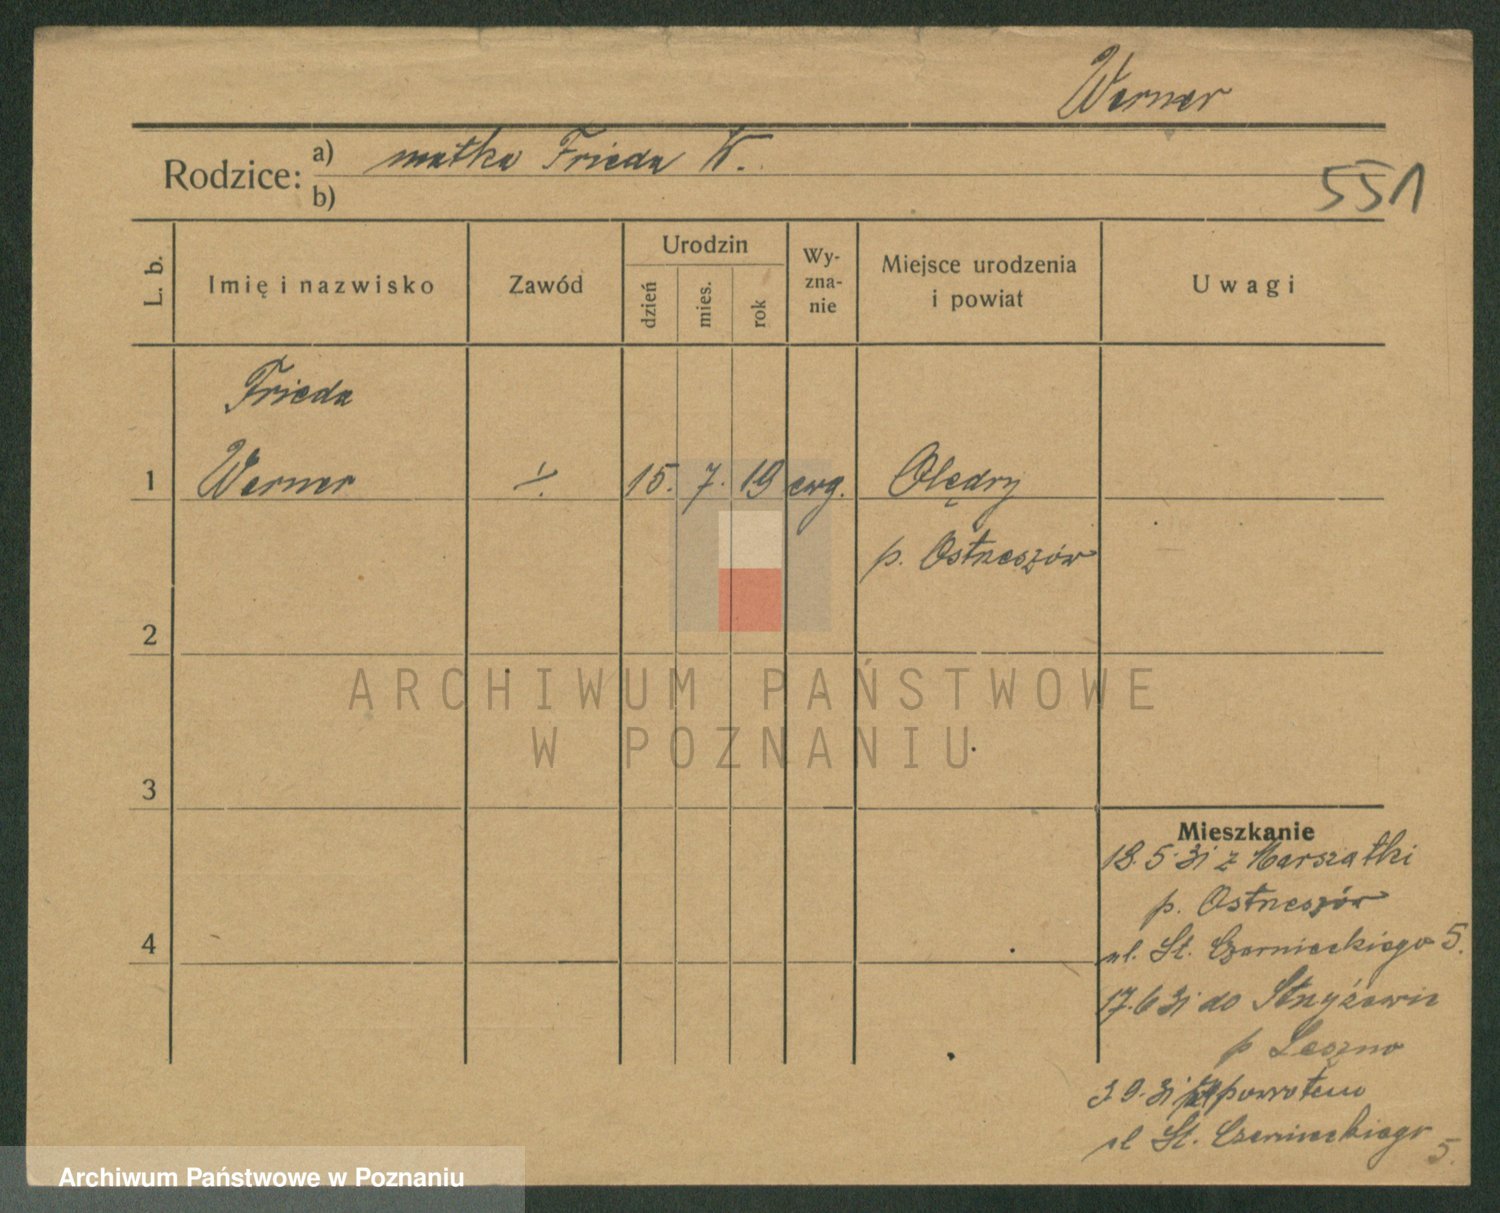 Werner
Rodzice: a) matka Frieda W.
b)
551
L. b.
Imię i nazwisko
Zawód
Urodzin
dzień
mies.
rok
Wy-
zna-
nie
Miejsce urodzenia
i powiat
Uwagi
Frieda
1 Werner ./. 15. 7. 19 ewg. Olędry
p. Ostrzeszów
2
ARCHIWUM PAŃSTWOWE
W POZNANIU
3
Mieszkanie
18.5.31 z Marszałki
p. Ostrzeszów
4
ul. St. Czarnieckiego 5.
17.6 31 do Strzyżewic
p Leszno
3.9.31 powrotem
ul St. Czarnieckiego
5.
Archiwum Państwowe w Poznaniu